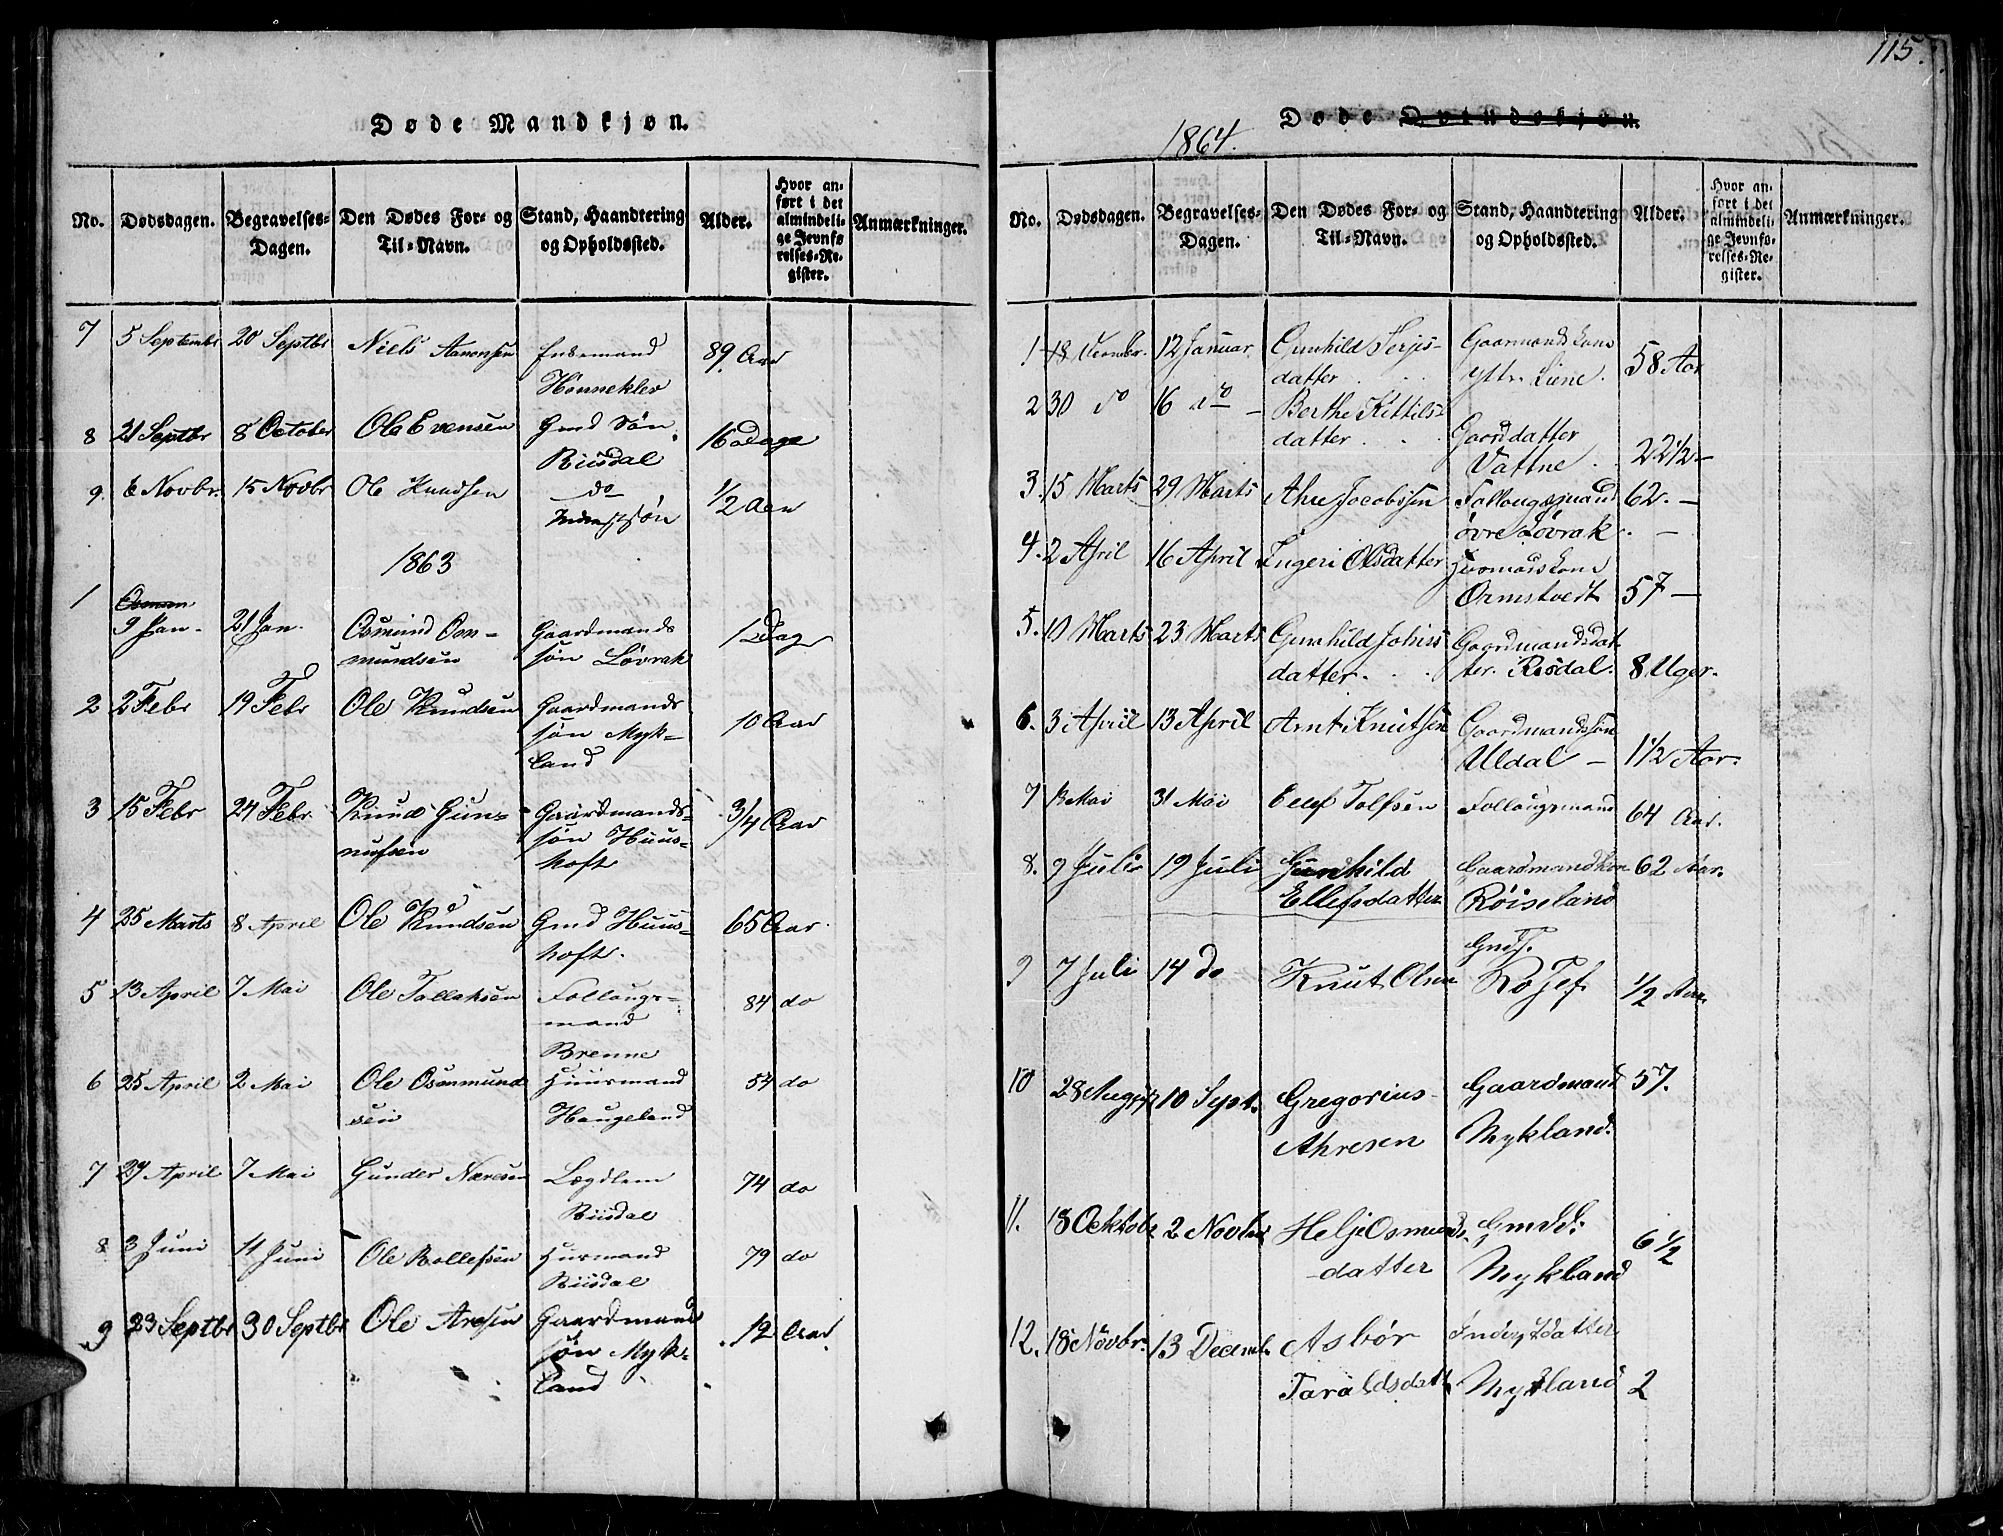 Døde Mandkjøn.
No. Dødsdagen. Begravelses-Dagen. Den Dødes For- og Til-Navn. Stand, Haandtering og Opholdssted. Alder. Hvor anført i det almindelige Jevnførelses-Register. Anmærkninger.
7 5 Septembr 20 Septbr Niels Aanonsen
Hønneklev 89 Aar
8 21 Septbr 8 October Ole Evensen Gmd Søn
Riisdal 16 Dage
9. 6 Novbr. 15 Novbr Ole Knudsen do
Inderstsøn 1/2 Aar
1863
1 9 Jan. 21 Jan. Osmund Os-
mundsen Gaardmands
søn Løvrak 1 Dag
2 2 Febr 19 Febr Ole Knudsen Gaardmands
søn Myk-
land 10 Aar
3 15 Febr 24 Febr Knud Gun-
nufsen Gaardmands-
søn Huus-
hoft 3/4 Aar
4 25 Marts 8 April Ole Knudsen Gmd Huus-
hoft. 65 Aar
5 13 April 7 Mai Ole Tallaksen Follaugs-
mand
Brenne 84 do
6 25 April 2 Mai Ole Osmund
sen Huusmand
Haugeland 54 do
7 27 April 7 Mai Gunder Næresen Lægdlem
Riisdal 74 do
8 3 Juni 11 Juni Ole Rollefsen Husmand
Riisdal 79 do
9 23 Septbr 30 Septbr Ole Aresen Gaardmands
søn Myk-
land 12 Aar
115.
Døde Qvindekjøn.
1864.
No. Dødsdagen. Begravelses-Dagen. Den Dødes For- og Til-Navn. Stand, Haandtering og Opholdssted. Alder. Hvor anført i det almindelige Jevnførelses-Register. Anmærkninger.
1 12 Januar. Gunhild Terjes-
datter Gaarmandskone
yttr. Liene. 58 Aar
2 30 do 16 do Berthe Kittils-
datter Gaardatter
Vattne 22 1/2 —
3. 15 Marts 29 Marts Ahre Jacobsen Follougsmand
øvre Løvrak 62. —
4. 2 April 16 April Ingeri Olsdatter
Ormstvedt 57 —
5. 10 Marts 23 Marts Gunhild
datter. Gaardmandsdat-
ter. Risdal. 8 Uger.
6. 3 April 13 April Arnt Knutsen Gaardmandssøn
Uldal — 1 1/2 Aar.
7 13 Mai 31 Mai Ellef Tolfsen Follougsmand 64 Aar.
8. 9 Juli 19 Juli Gunhild
Ellefsdatter Gaardmandkon
Røiseland 62 Aar.
9 7 Juli 14 do Knut Olsen 1/2 Aar.
10 28 August 10 Sept. Gregorius
Ahresen Gaardmand
Mykland. 57.
11. 18 Octobr 2 Novbr Helje Osmunds-
datter Gmdd:
Mykland 6 1/2
12. 18 Novbr. 13 Decembr Asbør
Taraldsdatt. Inderstdatter
Mykland 2